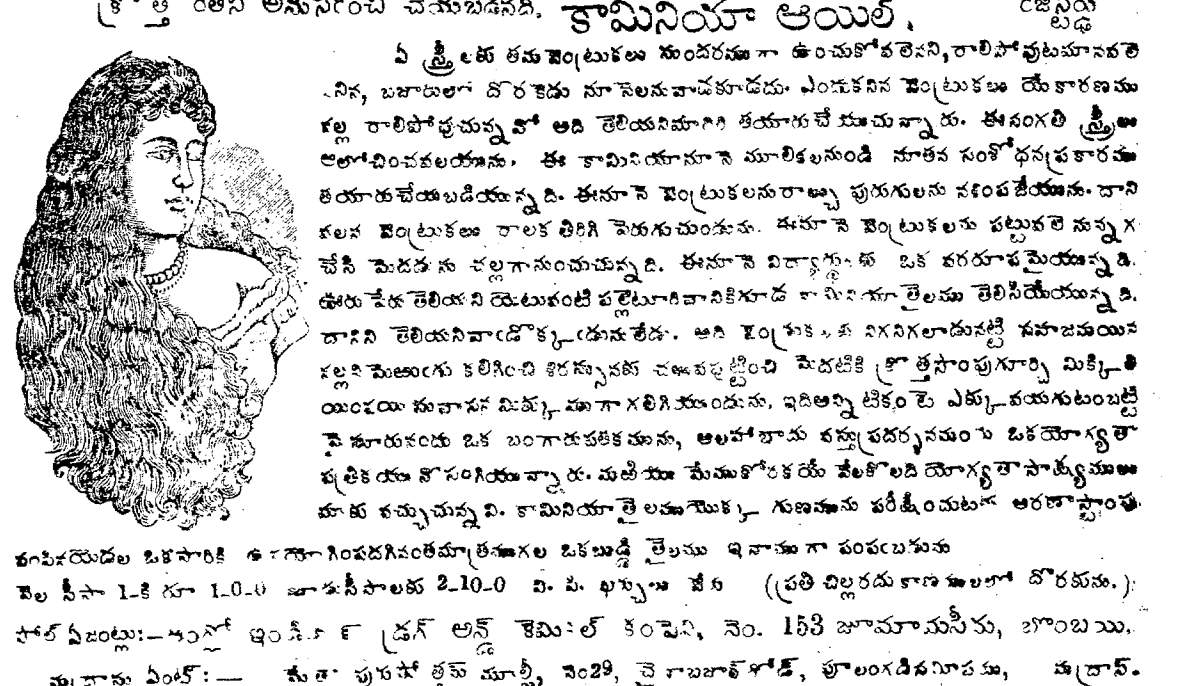 క్రొత్త రీతిని అనుసరించి చేయబడినది. కామినియా ఆయిల్. రిజిష్టర్డు
ఏ స్త్రీలకు తమ వెంట్రుకలు సుందరముగా ఉంచుకోవలెనని, రాలిపోవుటమానవలె
నిన, బజారులో దొరకెడు నూనెలనువాడకూడదు. ఎందుకనిన వెంట్రుకలు యే కారణము
వల్ల రాలిపోవుచున్నవో అది తెలియనిమాదిరి తయారుచేయుచున్నారు. ఈసంగతి స్త్రీలు
ఆలోచించవలయును. ఈ కామినియానూనె మూలికలనుండి నూతన సంశోధనప్రకారము
తయారుచేయబడియున్నది. ఈనూనె వెంట్రుకలనురాల్చు పురుగులను నశింపజేయును. దాని
వలన వెంట్రుకలు రాలక తిరిగి పెరుగుచుండును. ఈనూనె వెంట్రుకలను పట్టువలె నున్నగ
చేసి మెదడును చల్లగానుంచుచున్నది. ఈనూనె విద్యార్థులకు ఒక వరరూపమైయున్నది.
ఊరు పేరు తెలియని యెటువంటి పల్లెటూరివానికిగూడ కామినియా తైలము తెలిసియేయున్నది.
దానిని తెలియనివాఁడొక్కఁడునులేడు. అది వెంట్రుకలకు నిగనిగలాడునట్టి సహజమయిన
నల్లని మెఱుఁగు కలిగించి శిరస్సునకు చలువపుట్టించి మెదటికి క్రొత్తసొంపుగూర్చి మిక్కిలి
యింపయి సువాసన మిక్కుముగా గలిగియుండును, ఇదిఅన్నిటికంటె ఎక్కువయగుటంబట్టి
మైసూరునందు ఒక బంగారుపతకమును, అలహాబాదు వస్తుప్రదర్శనమందు ఒకయోగ్యతా
పత్రికయు నొసంగియున్నారు. మఱియు మేముకోరకయే వేలకొలది యోగ్యతాసాక్ష్యములు
మాకు వచ్చుచున్నవి. కామినియా తైలముయొక్క గుణమును పరీక్షించుటకు అరణాస్టాంపు
పంపినయెడల ఒకసారికి ఉపయోగింపదగినంతమాత్రముగల ఒకబుడ్డి తైలము ఇనాముగా పంపఁబడును
వెల సీసా 1-కి రూ 1-0-0 మూడుసీసాలకు 2-10-0 వి. పి. ఖర్చులు వేరు (ప్రతి చిల్లరదుకాణములలో దొరకును.)
సోల్ ఏజంట్లు:—ఆంగ్లో ఇండియన్ డ్రగ్ అన్డ్ కెమికల్ కంపెని, నెం. 153 జూమామసీదు, బొంబాయి.
మద్రాసు ఏంట్:— మేతా పురుషోత్తమ్ మూల్జీ, నెం29, చైనాబజార్‌రోడ్, పూలంగడిసమీపము, మద్రాస్.